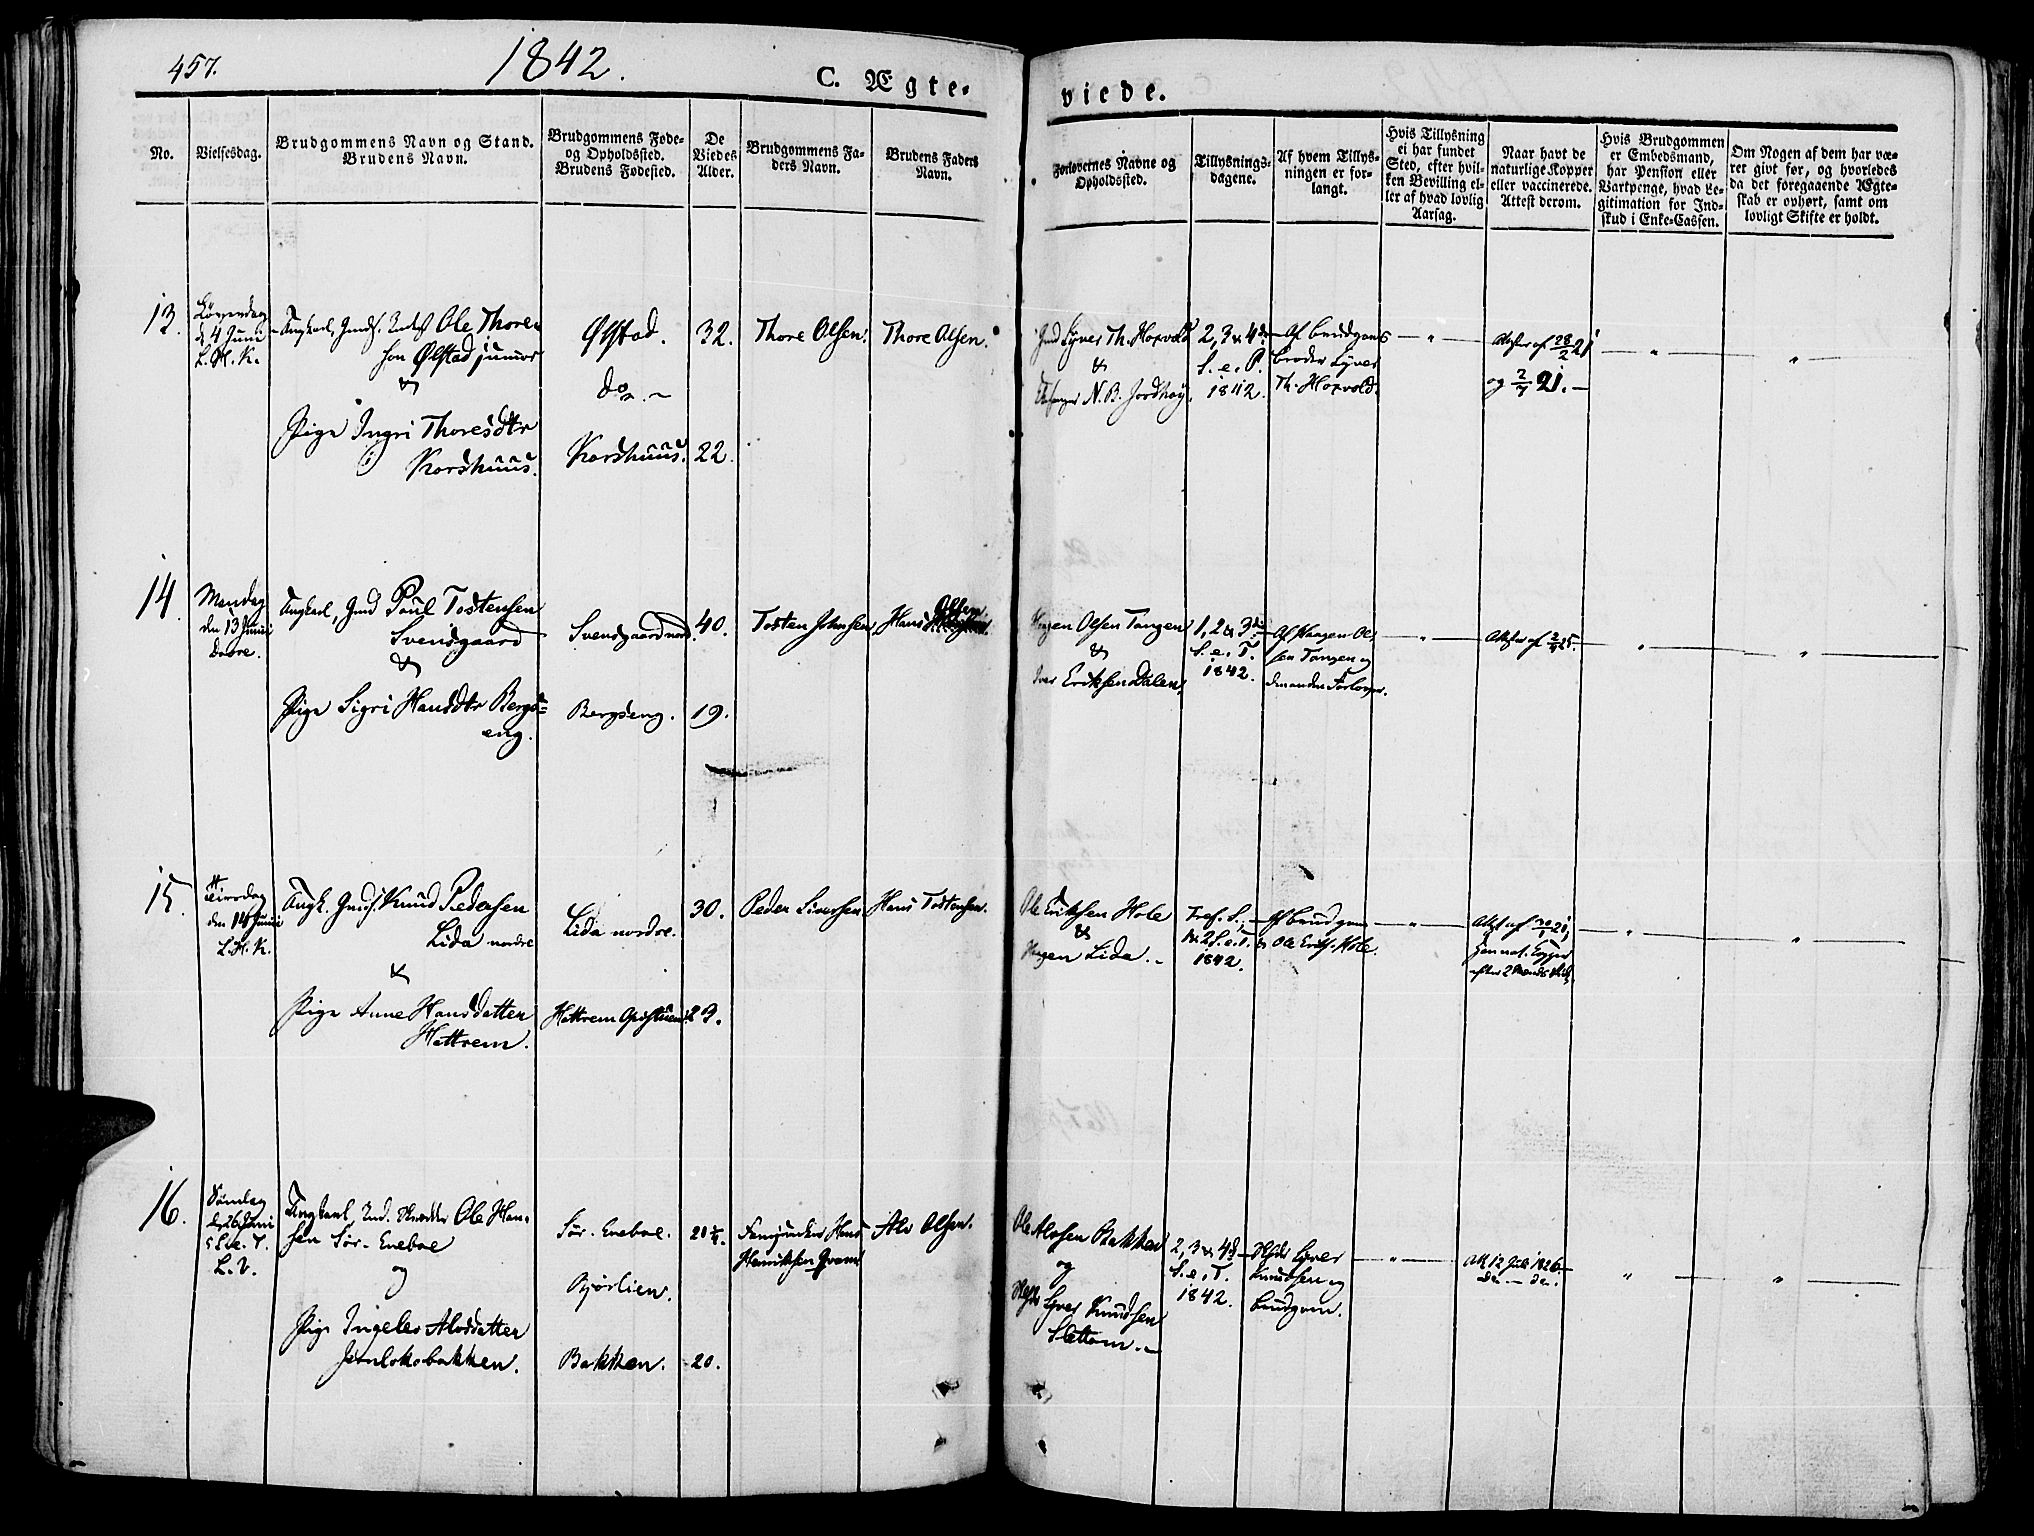 457.
1842.
C. Ægte-
viede.
No.
Vielsesdag.
Brudgommens Navn og Stand.
Brudens Navn.
Brudgommens Føde-
og Opholdssted.
Brudens Fødested.
De
Viedes
Alder.
Brudgommens Fa-
ders Navn.
Brudens Faders
Navn.
Forlovernes Navne og
Opholdssted.
Tillysnings-
dagene.
Af hvem Tillys-
ningen er for-
langt.
Hvis Tillysning
ei har fundet
Sted, efter hvil-
ken Bevilling el-
ler af hvad lovlig
Aarsag.
Naar havt de
naturlige Kopper
eller vaccinerede.
Attest derom.
Hvis Brudgommen
er Embedsmand,
har Pension eller
Vartpenge, hvad Le-
gitimation for Ind-
skud i Enke-Cassen.
Om Nogen af dem har væ-
ret givt før, og hvorledes
da det foregaaende Ægte-
skab er ophørt, samt om
lovligt Skifte er holdt.
13.
Løverdag
d. 4 Juni
L. H. K.
Ungkarl, Ole Thore-
sen Ølstad junior
&
Pige Ingri Thoresdtr
Korshuus.
Ølstad.
do. ~
Korshuus.
32.
22.
Thore Olsen.
Thore Olsen.
Gmd Syver Th. Horvold
&
N. B. Jordhøy.
2, 3 & 4de
S. e. P.
1842.
Af brudgoms
broder Syver
Th. Horvold.
"
Attester af 28/2 21
og 2/7 21. -
"
"
14.
Mandag
den 13 Juni
Dovre.
Ungkarl, Gmd Poul Tostensen
Svensgaard
&
Pige Sigri Hansdtr Bergs-
eng.
Svensgaard nord.
Bergseng.
40.
19.
Tosten Johnsen
Hans Olsen.
Haagen Olsen Tangen
&
Iver Eriksen Dalen,
1, 2 & 3die
S. e. T.
1842.
Af Haagen Ol-
sen Tangen og
den anden Forlover.
"
Attester af 25.
"
"
15.
Tiirsdag
den 14 Juni
L. H. K.
Ungk. Gmds. Knud Pedersen
Lida nordre
&
Pige Anne Hansdatter
Hattrem.
Lida nordre.
Hattrem
30.
23.
Peder Siversen
Hans Tostensen.
Ole Eriksen Hole
&
Haagen Lida. -
Tref. S.,
1 & 2 S. e. T.
1842.
Af brudgom
& Ole Eriks. Hole.
"
Attest af 21,
"
"
16.
Søndag
d. 26 Juni
5 S. e. T.
L. V.
Ungkarl, Ole Han-
sen Sør-Eneboe
og
Pige Ingeleo Alvsdatter
Jernlokobakken.
Sør-Eneboe.
Bjørlien.
Bakken.
20.
Hans
Henriksen
Alv Olsen.
Ole Alvsen Bakken
og
Syver Knudsen
Slettom. -
2, 3 & 4de
S. e. T.
1842.
Syver
Knudsen og
brudgom.
"
Att. 12 Juli 1826.
do. - do.
"
"